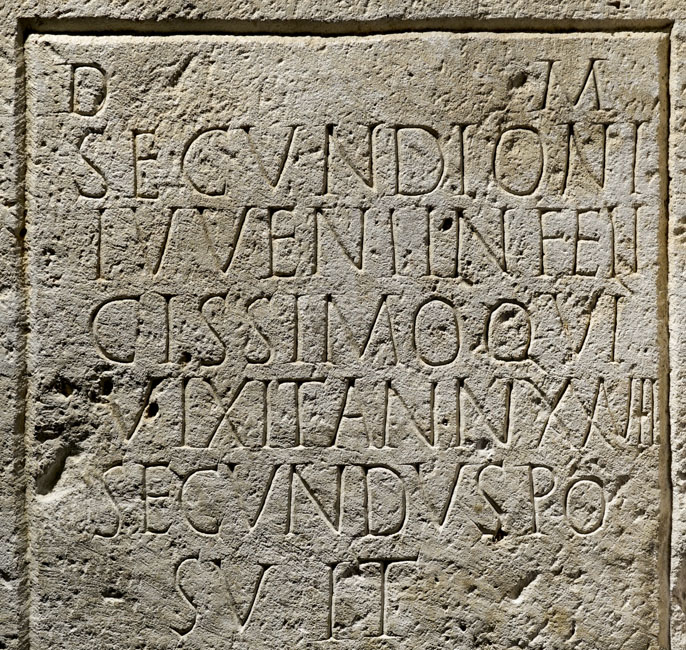 D M
SECVNDIONI
IVVENI INFELI
CISSIMO QVI
VIXIT ANN XXVIIII
SECVNDVS PO
SVIT